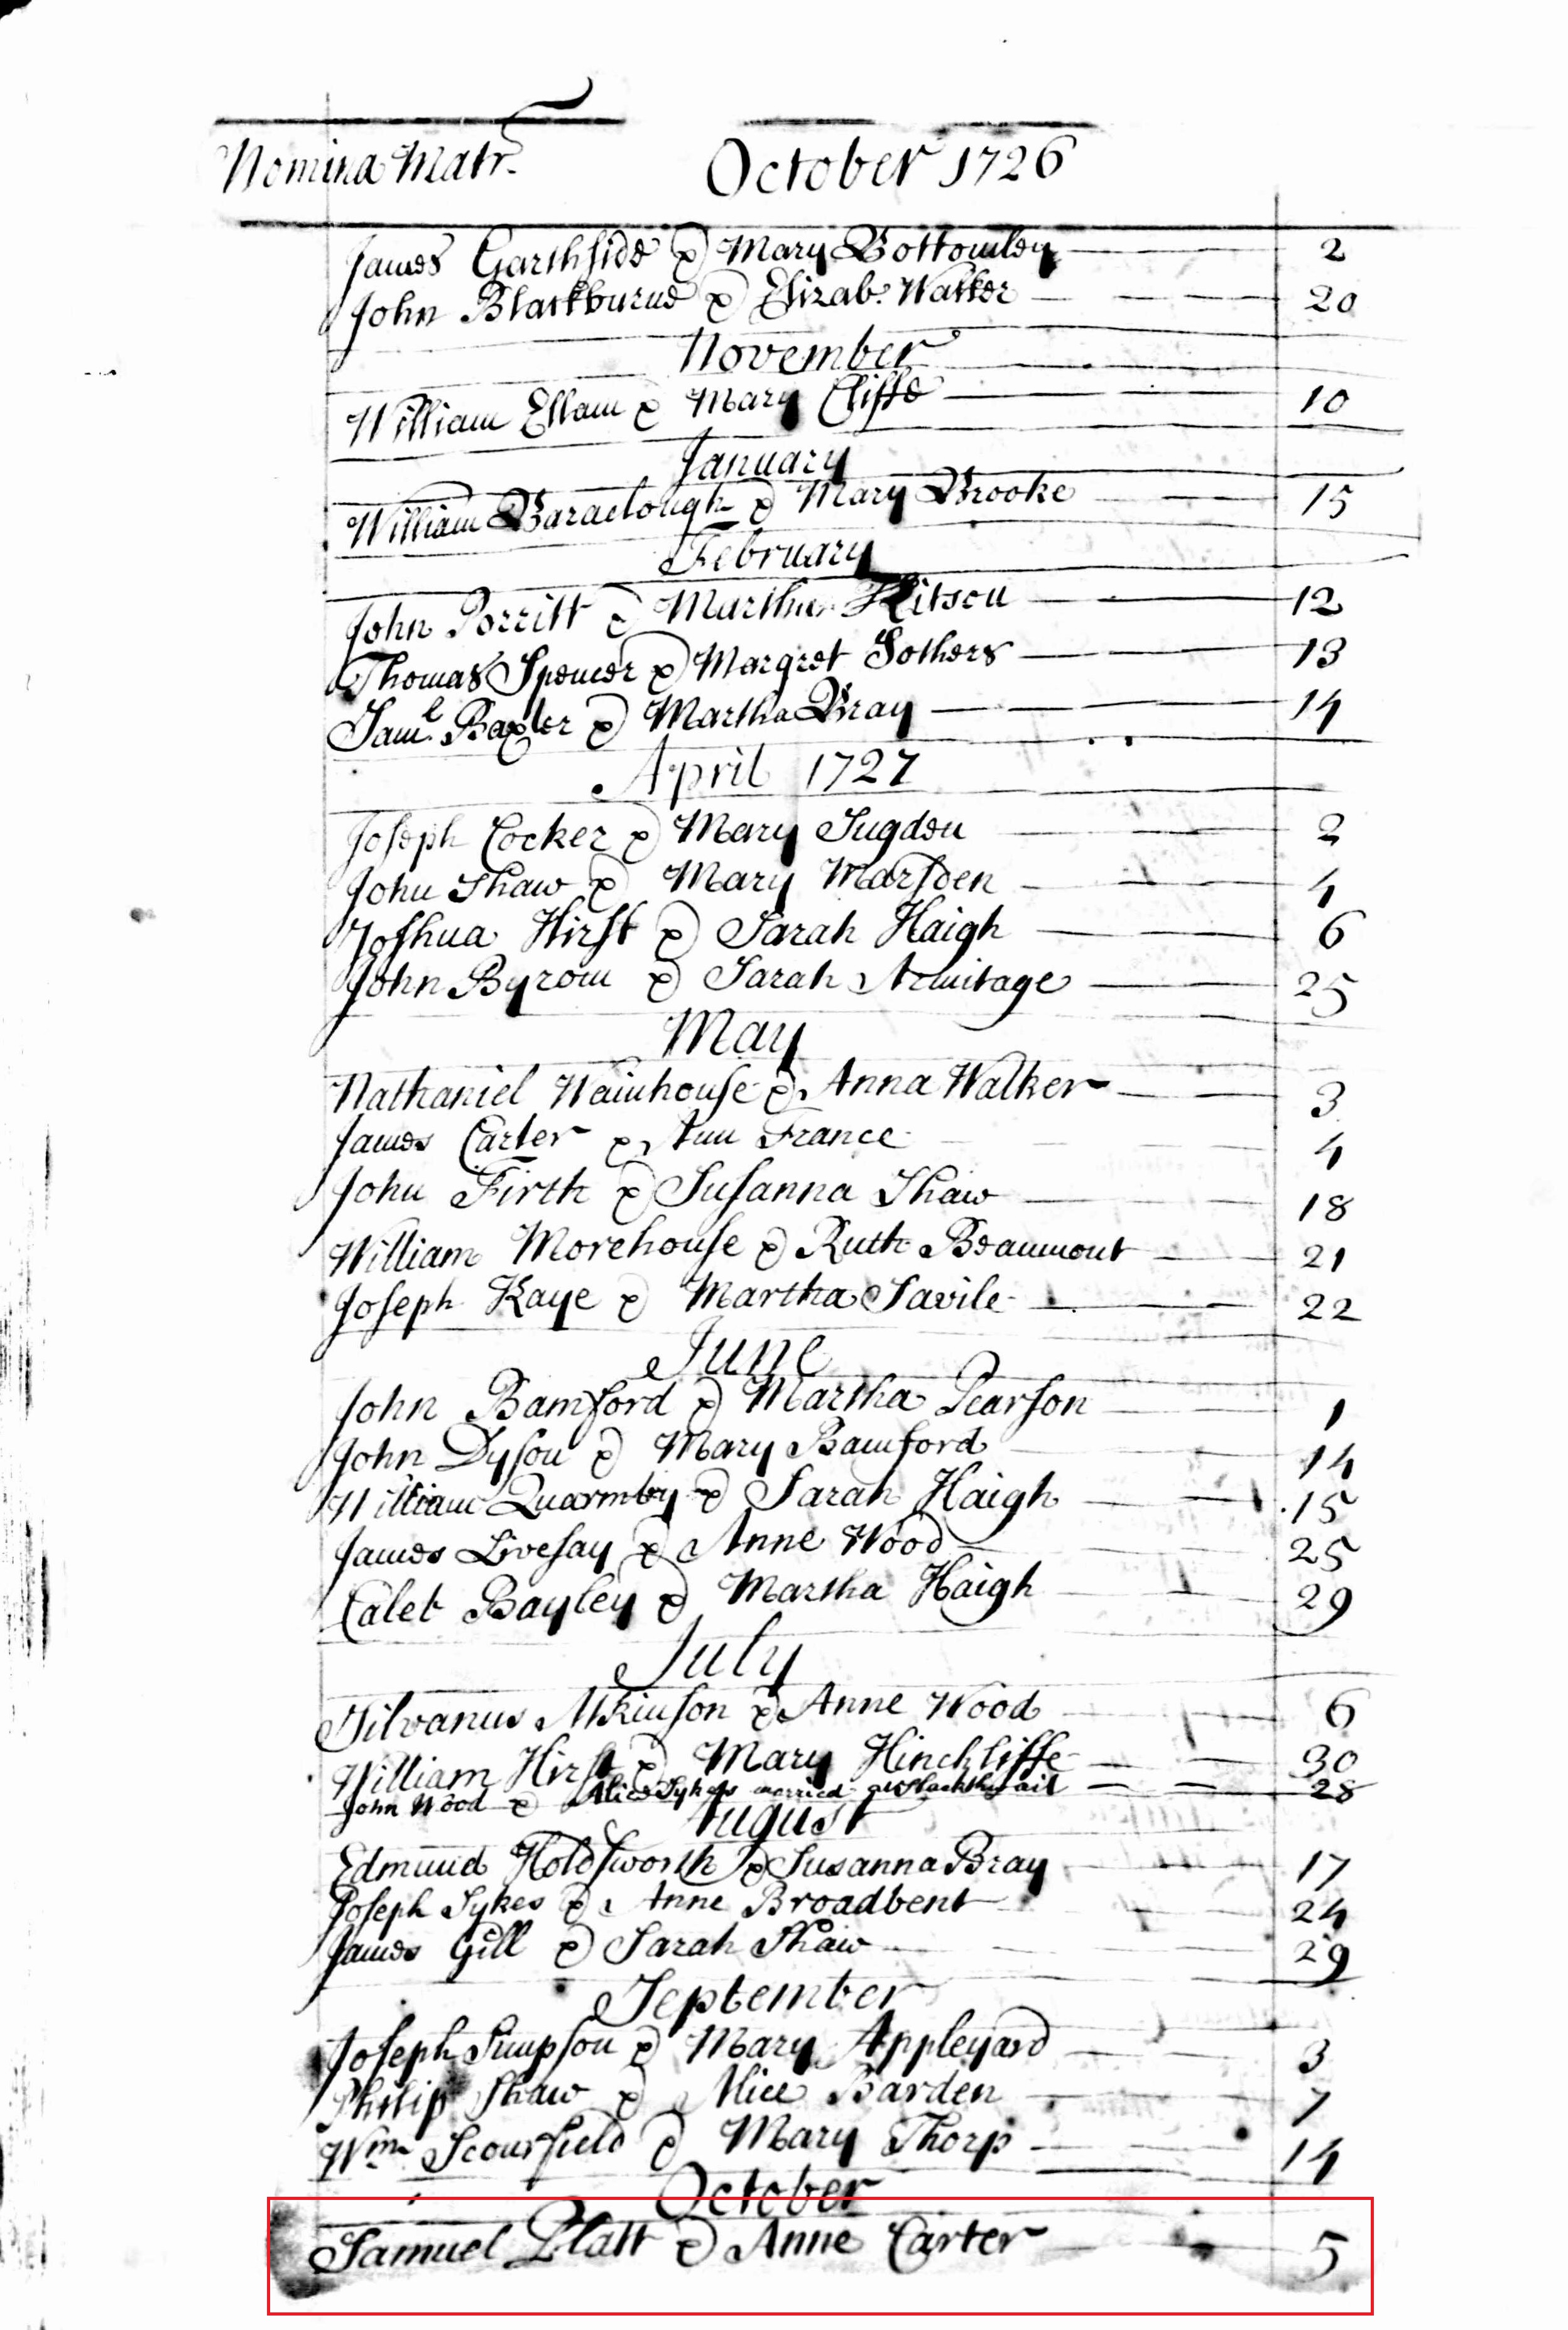 Nomina Matr. October 1726
James Garthside & Mary Bottomley 2
John Blackburne & Elizab. Walker 20
November
William Ellam & Mary Cliffe 10
January
William Baraclough & Mary Brooke 15
February
John Porritt & Martha Kitson 12
Thomas Spencer & Margret Sothers 13
Saml. Baxter & Martha Bray 14
April 1727
Joseph Cocker & Mary Sugden 2
John Shaw & Mary Marsden 4
Joshua Hirst & Sarah Haigh 6
John Byrom & Sarah Armitage 25
May
Nathaniel Wainhouse & Anna Walker 3
James Carter & Ann France 4
John Firth & Susanna Shaw 18
William Morehouse & Ruth Beaumont 21
Joseph Kaye & Martha Savile 22
June
John Bamford & Martha Pearson 1
John Dyson & Mary Bamford 14
William Quarmby & Sarah Haigh 15
James Livesay & Anne Wood 25
Caleb Bayley & Martha Haigh 29
July
Silvanus Atkinson & Anne Wood 6
William Hirst & Mary Hinchliffe 30
John Wood & Alice Sykes married at Slackthwait 28
August
Edmund Holdsworth & Susanna Bray 17
Joseph Sykes & Anne Broadbent 24
James Gill & Sarah Shaw 29
September
Joseph Simpson & Mary Appleyard 3
Philip Shaw & Alice Barden 7
Wm. Scourfield & Mary Thorp 14
October
Samuel Platt & Anne Carter 5